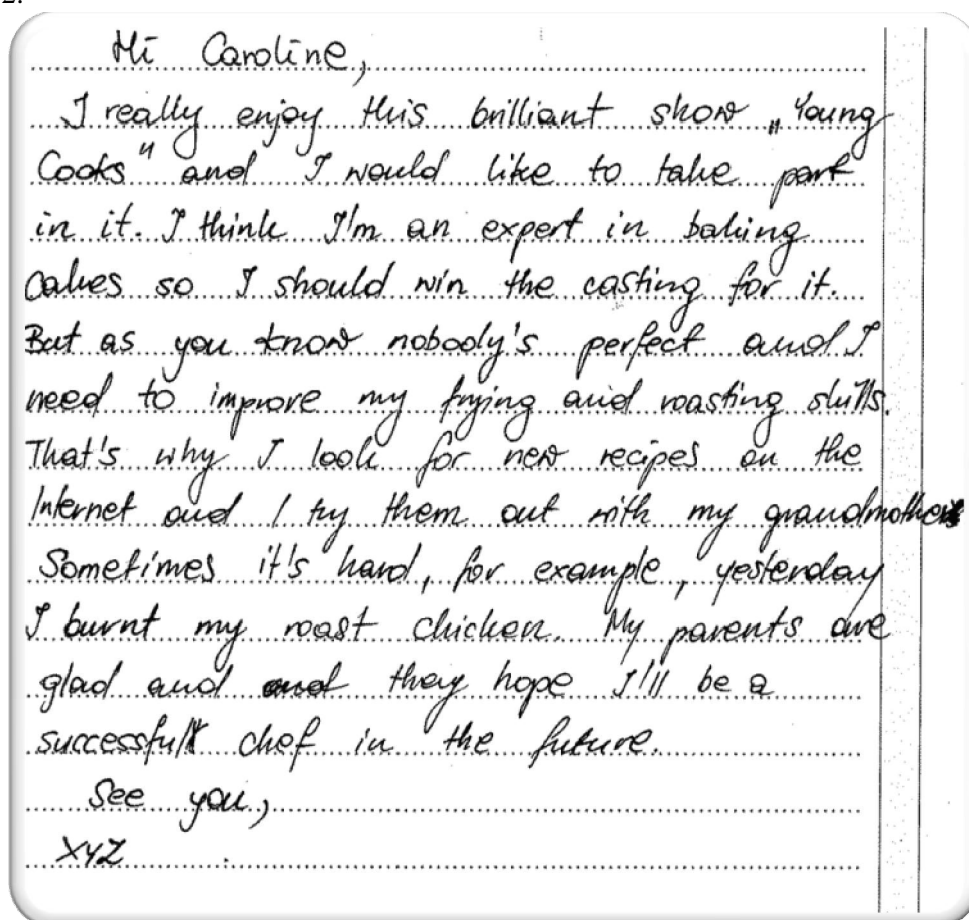 2.
Hi Caroline,
I really enjoy this brilliant show „Young
Cooks" and I would like to take part
in it. I think I'm an expert in baking
cakes so I should win the casting for it.
But as you know nobody's perfect and I
need to improve my frying and roasting skills.
That's why I look for new recipes on the
Internet and I try them out with my grandmother
Sometimes it's hard, for example, yesterday
I burnt my roast chicken. My parents are
glad and they hope I'll be a
successful chef in the future.
See you,
XYZ